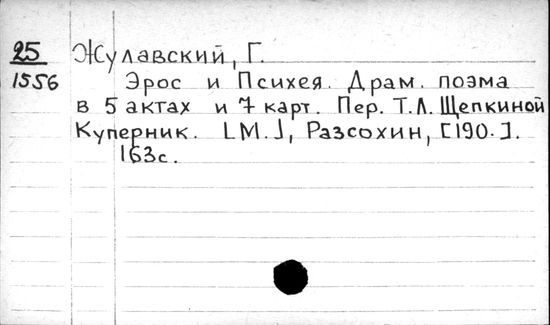 25
1556
Жулавский, Г.
Эрос и Психея. Драм. поэма
в 5 актах и 7 карт. Пер. Т.Л. Щепкиной
Куперник. [М.], Разсохин, [190.].
163с.